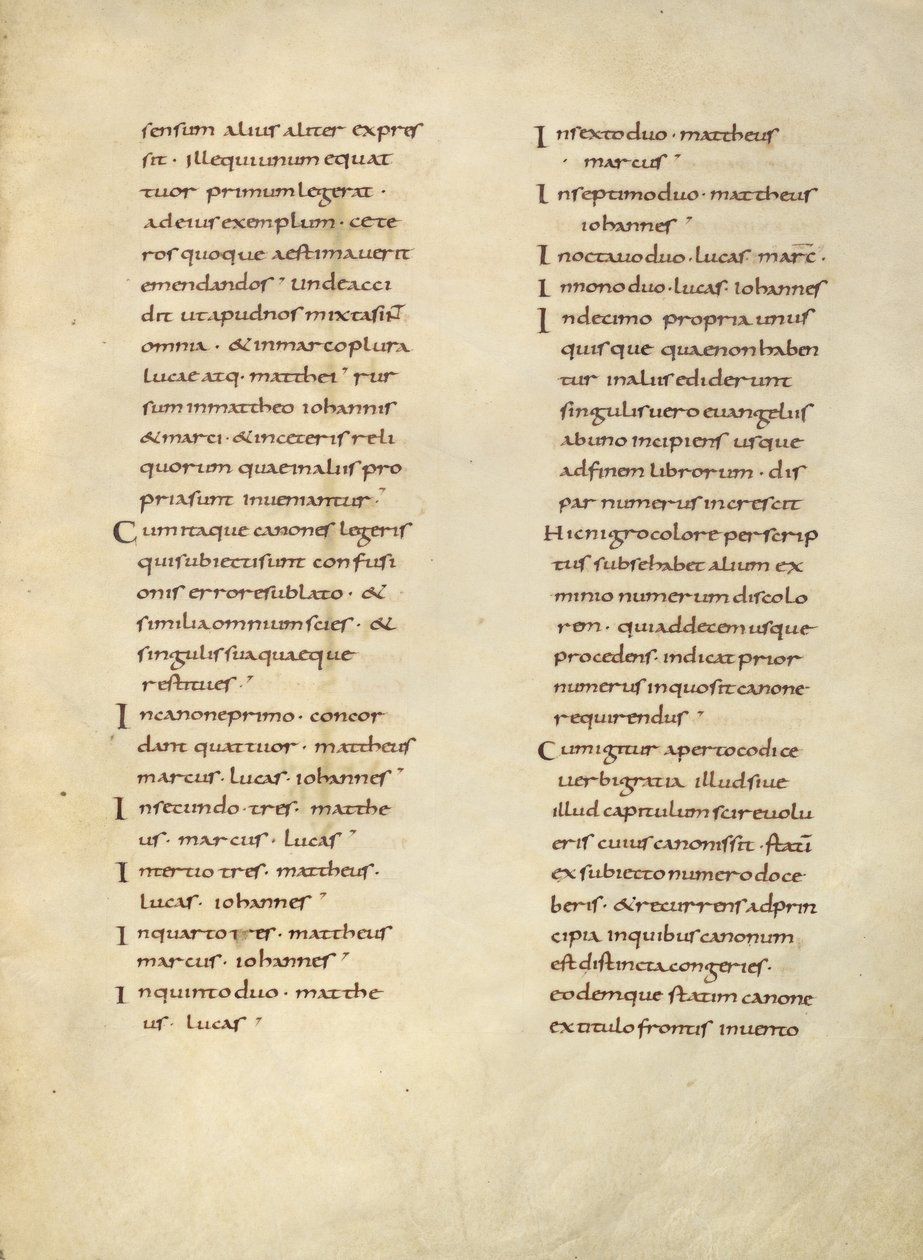 sensum alius aliter expres
sit · Ille qui unum e quat
tuor primum legerat ·
ad eius exemplum · cete
ros quoque aestimaverit
emendandos · Unde acci
dit ut apud nos mixta sin̄t
omnia · & in marco plura
lucae atq· matthei · rur
sum in mattheo iohannis
& marci · & in ceteris reli
quorum quae in aliis pro
pria sunt inveniantur ·
Cum itaque canones legeris
qui subiecti sunt confusi
onis errore sublato · &
similia omnium scies · &
singulis sua quaeque
restitues ·
In canone primo · concor
dant quattuor · mattheus
marcus · lucas · iohannes
In secundo · tres · matthe
us · marcus · lucas
In tertio tres · mattheus ·
lucas · iohannes
In quarto tres · mattheus
marcus · iohannes
In quinto duo · matthe
us · lucas
In sexto duo · mattheus
· marcus
In septimo duo · mattheus
iohannes
In octavo duo · lucas · marc̄ ·
In nono duo · lucas · Iohannes
In decimo propria unus
quisque quae non haben
tur in aliis ediderunt
singulis vero evangeliis
ab uno incipiens usque
ad finem librorum · dis
par numerus increscit
Hic nigro colore perscrip
tus sub se habet alium ex
minio numerum discolo
rem · qui ad decem usque
procedens · indicat prior
numerus in quo sit canone
requirendus
Cum igitur aperto codice
verbi gratia illud sive
illud capitulum scire volu
eris cuius canonis sit · statī
ex subiecto numero doce
beris · & recurrens ad prin
cipia in quibus canonum
est distincta congeries ·
eodemque statim canone
ex titulo frontis invento